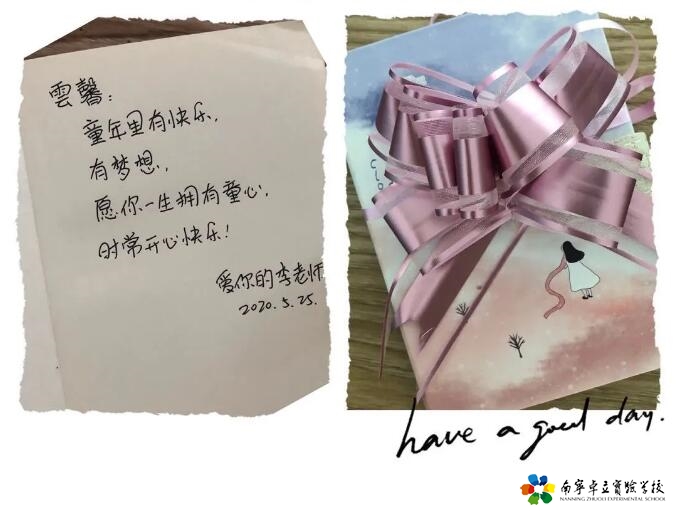 雲馨：
童年里有快乐，
有梦想，
愿你一生拥有童心，
时常开心快乐！
爱你的李老师
2020.5.25.
CLO
have a good day.
南寧卓立實驗学校
NANNING ZHUOLI EXPERIMENTAL SCHOOL